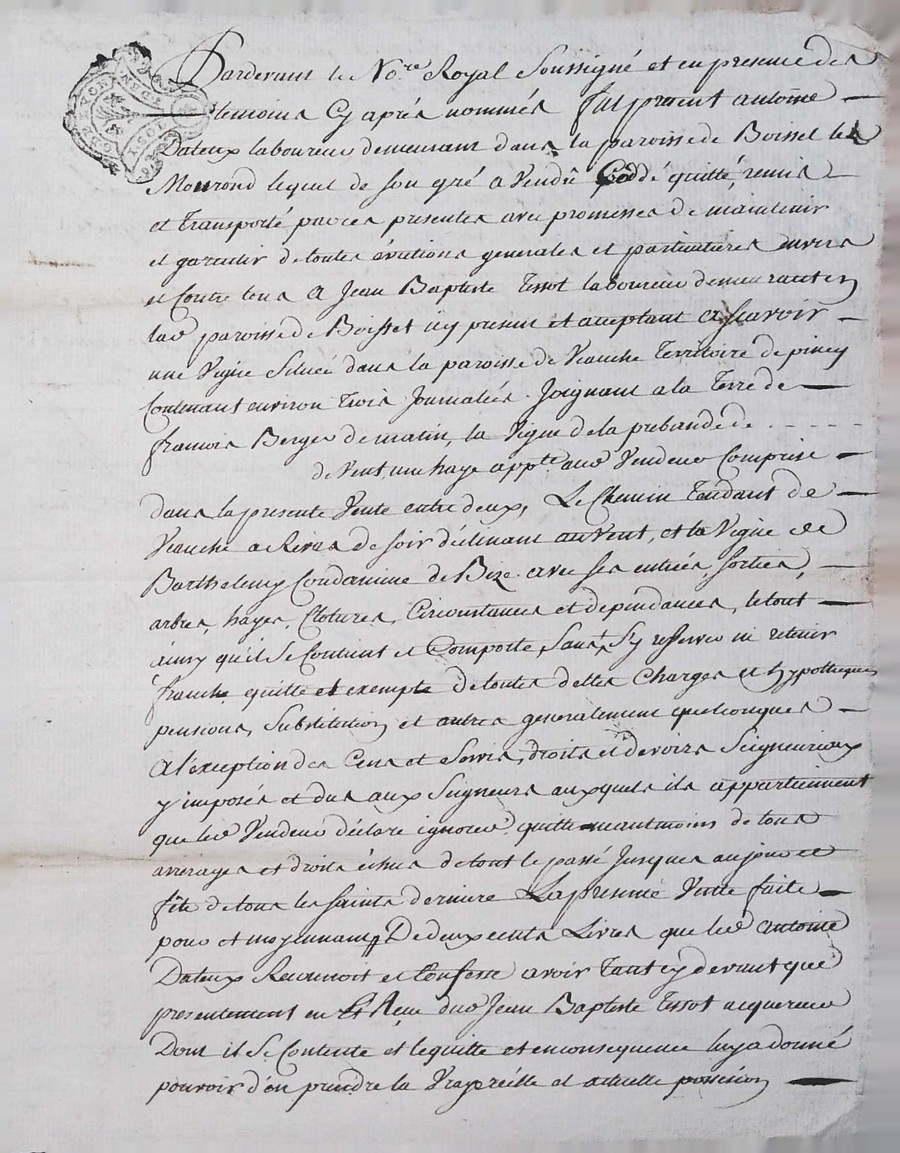 Pardevant le No.re Royal Soussigné et en presence des
temoins cy après nommés fut present antoine
Dateux laboureur demeurant dans la paroisse de Boisset les
Monrond lequel de son gré a Vendû Cèddé quitté, remis
et transporté par ces presentes avec promesses de maintenir
et garentir de toutes évictions generales et particulieres envers
et Contre tous a Jean Baptiste Tissot laboureur demeurant en
lad paroisse de Boisset icy present et acceptant ascavoir
une Vigne Située dans la paroisse de Veauche Territoire de piney
Contenant environ trois Journalées. Joignant a la Terre de
francois Berger de matin, la Vigne de la prebande de . . . . .
de Vent, une haye appte aud Vendeur Comprise
dans la presente Vente entre deux, Le Chemin Tendant de
Veauche a Rivas de soir declinant au Vent, et la Vigne de
Barthelemy Condamine de Bize. avec ses entrées, sorties,
arbres, hayes, Clotures, Circonstances et dependances, le tout
ainsy qu'il se Contient et Comporte, Sans s'y reserver ni retenir
franche quitte et exempte de toutes dettes Charges et hypotheques
pensions, Substitution et autres generalement quelconques
a l'exception des Cens et Servis, droits et devoirs Seigneuriaux
y imposés et dus aux Seigneurs auxquels ils appartiennent
que led Vendeur declare ignorer quitte neantmoins de tous
arrerages et droits échus de tout le passé Jusques aujour et
fête de tous les saints derniere La presente Vente faite
pour et moyennant De deux cents Livres que led antoine
Dateux Reconnoit et Confesse avoir tant cy devant que
presentement eu Et Reçu dud Jean Baptiste Tissot acquereur
Dont il se Contente et le quitte et en consequence luy a donné
pouvoir d'en prendre la Vraye réelle et actuelle possession